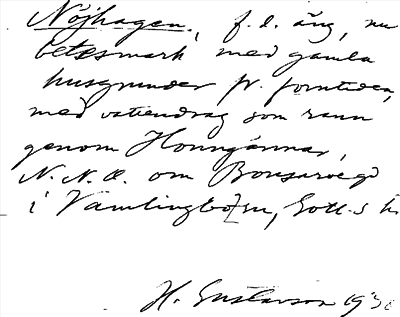 Nöjhagen, f.d. äng, nu
betesmark med gamla
husgrunder fr. forntiden,
med vattendrag som rann
genom Honngännar,
N.N.O. om Bonsarvegd
i Vamlingbo sn, Gotl.s
H. Gustavson 193